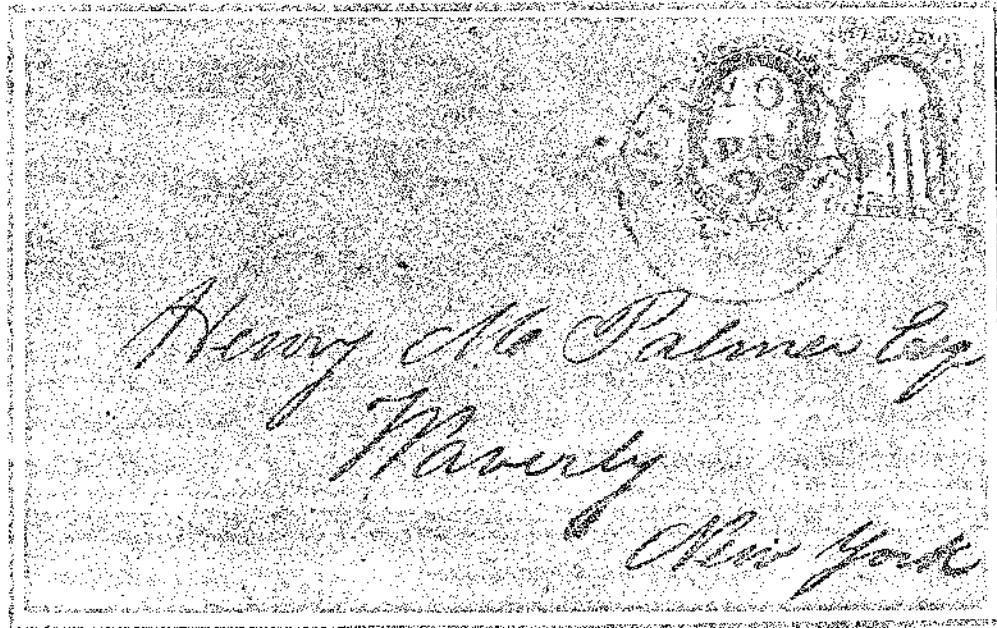 Henry M Palmer Esq
Waverly
New York